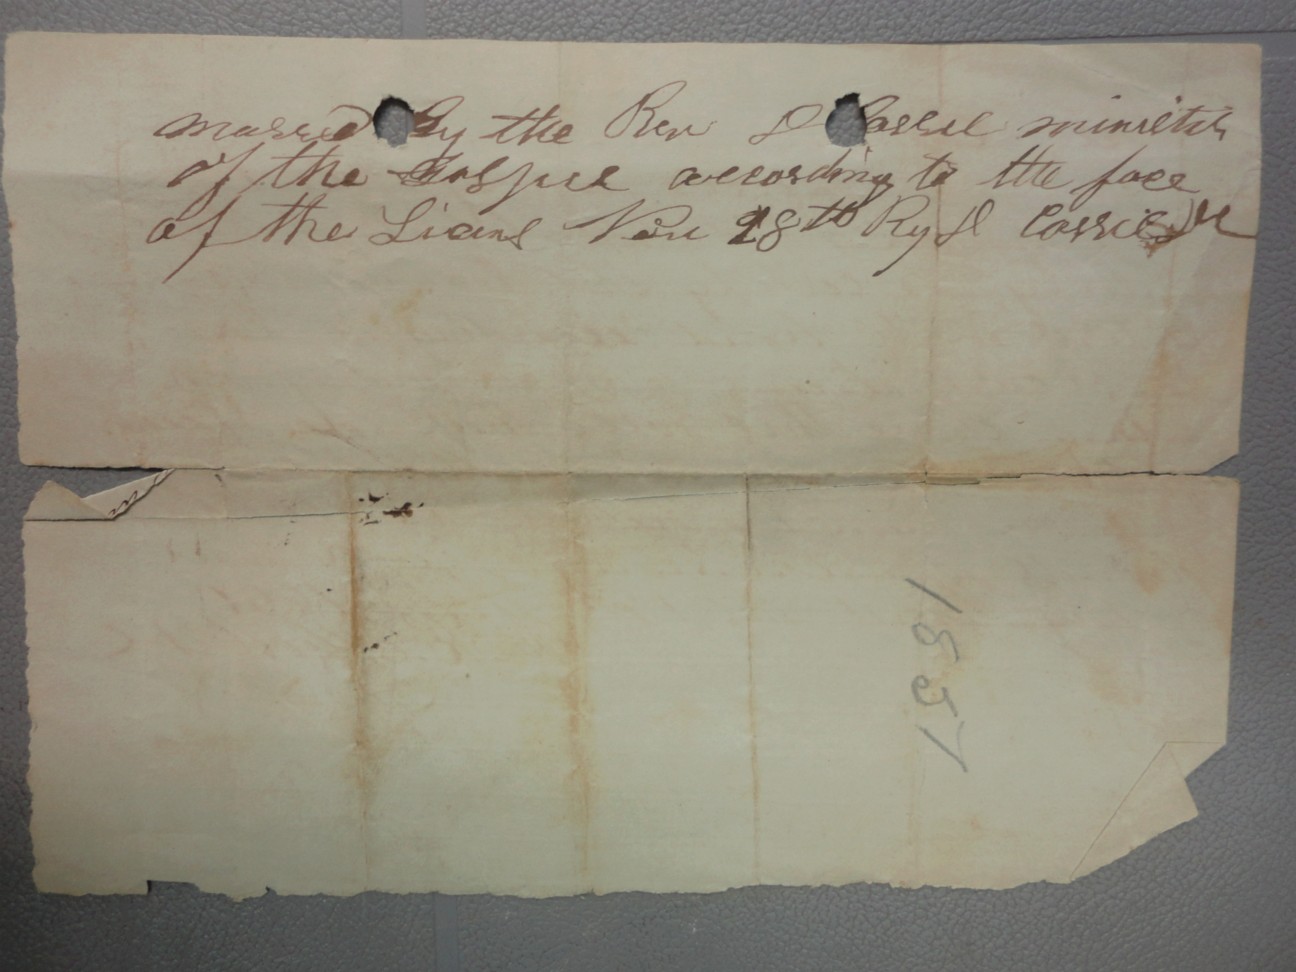 married By the Rev D Cassel minister
of the Gospel according to the face
of the Licens Nov 28th By D Cassel
1857